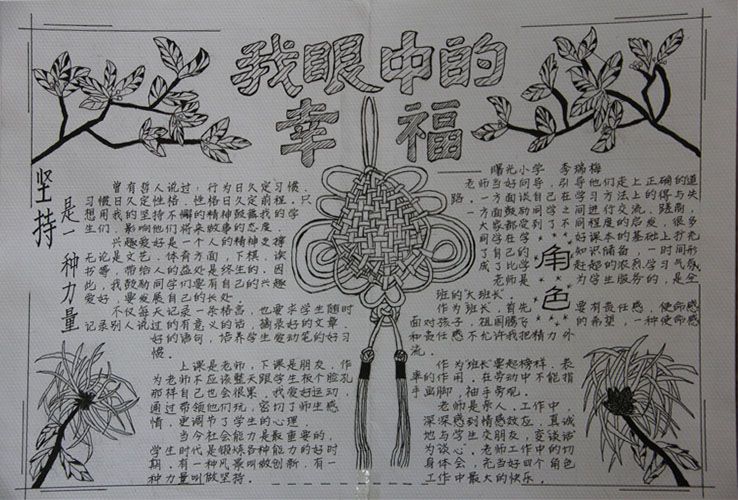 我眼中的
幸福
坚持
是一种力量
曾有哲人说过：行为日久定习惯，
习惯日久定性格，性格日久定前程。只
想用我的坚持不懈的精神鼓舞我的学
生们，影响他们将来做事的态度。
兴趣爱好是一个人的精神支撑
无论是文艺、体育方面，下棋、读
书等，带给人的益处是终生的，因
此，我鼓励同学们要有自己的兴趣
爱好，要发展自己的长处。
不仅每天记录一条格言，也要求学生随时
记录别人说过的有意义的话，摘录好的文章、
好的语句，培养学生爱动笔的好习
惯。
上课是老师，下课是朋友，作
为老师不应该整天跟学生板个脸孔
那样自己也会很累，我爱好运动，
通过带领他们玩，密切了师生感
情，更调节了学生的心理。
当今社会能力是最重要的，
学生时代是锻炼各种能力的好时
期，有一种风景叫做创新，有一
种力量叫做坚持。
曙光小学 李瑞梅
老师当好向导，引导他们走上正确的道
路，一方面谈自己在学习方法上的得与失
一方面鼓励同学之间进行交流、
大家都受到了不同程度的启发，很多
同学在学好课本的基础上扩充
了自己的知识储备，一时间形
成了比学赶超的浓烈学习气氛
老师是为学生服务的，是全
角色
班的"大班长"。
作为班长，首先要有责任感，使命感
面对孩子，祖国腾飞的希望，一种使命感
和责任感不允许我把精力外
流。
作为"班长"要起榜样、表
率的作用，在劳动中不能指
手画脚，袖手旁观。
老师是亲人，工作中，
深深感到情感效应，真诚
地与学生交朋友，变谈话
为谈心。老师工作中的切
身体会，充当好四个角色
工作中最大的快乐。